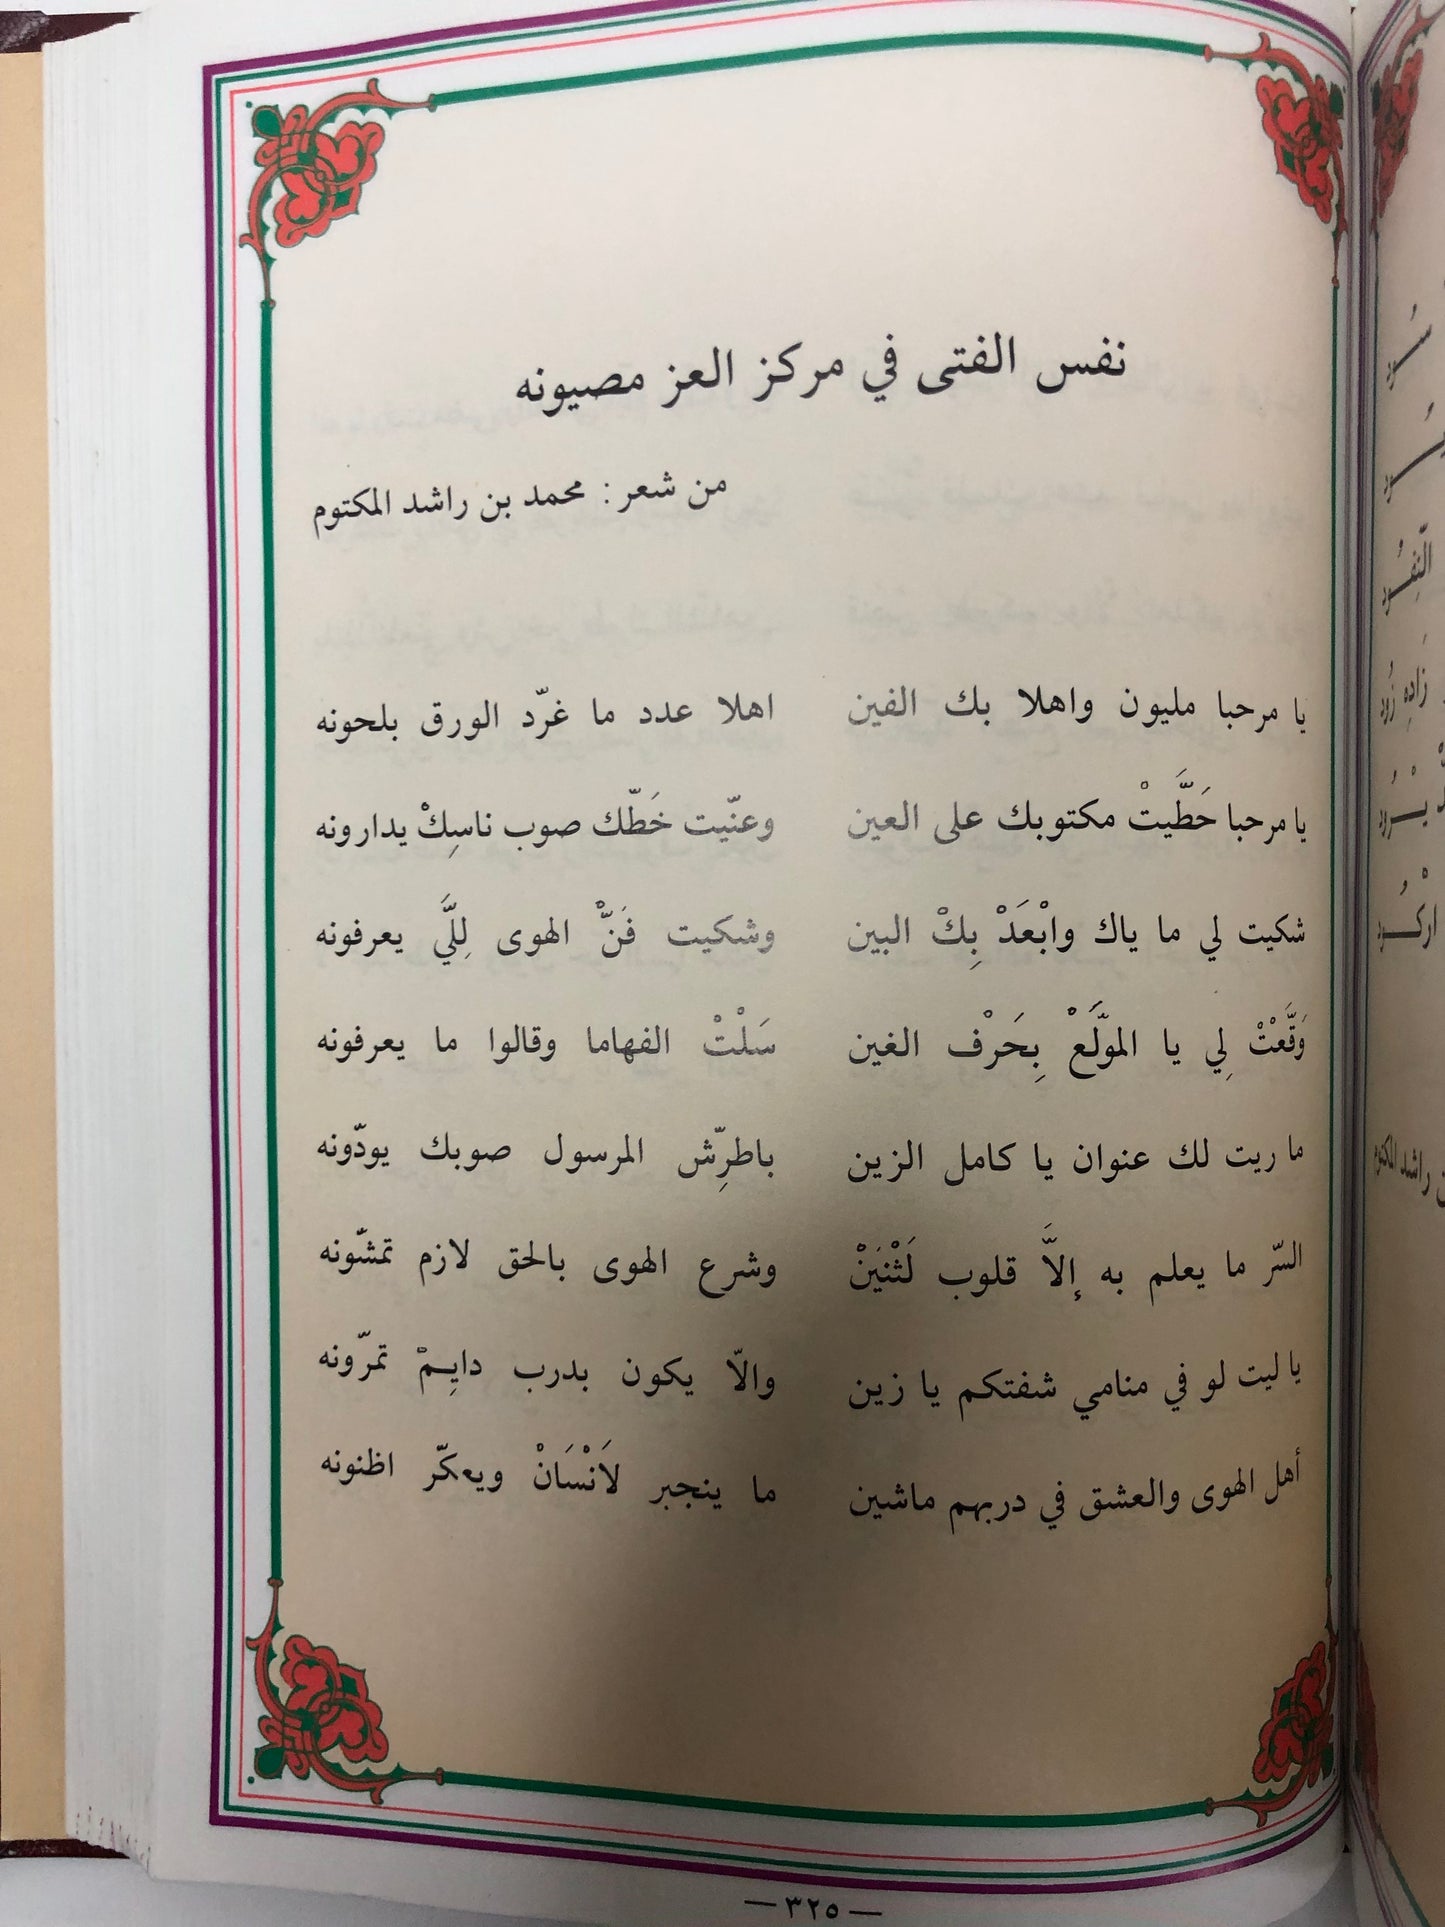 نفس الفتى في مركز العز مصيونه
من شعر : محمد بن راشد المكتوم
يا مرحبا مليون واهلا بك الفين اهلا عدد ما غرّد الورق بلحونه
يا مرحبا حَطَّيتْ مكتوبك على العين وعنّيت خَطّك صوب ناسِكْ يدارونه
شكيت لي ما ياك وابْعَدْ بِكْ البين وشكيت فَنّْ الهوى لِلَّي يعرفونه
وَقَّعْتْ لِي يا المولَّعْ بِحَرْف الغين سَلْتْ الفهاما وقالوا ما يعرفونه
ما ريت لك عنوان يا كامل الزين باطرِّش المرسول صوبك يودّونه
السرّ ما يعلم به إلاَّ قلوب لَثْنَينْ وشرع الهوى بالحق لازم تمشّونه
يا ليت لو في منامي شفتكم يا زين والاّ يكون بدرب دايِمْ تمرّونه
أهل الهوى والعشق في دربهم ماشين ما ينجبر لاَنْسَانْ ويعكّر اظنونه
— ٣٢٥ —
سُود
النّفُود
زَادِهِ زُود
يْرُود
ارْكُود
راشد المكتوم